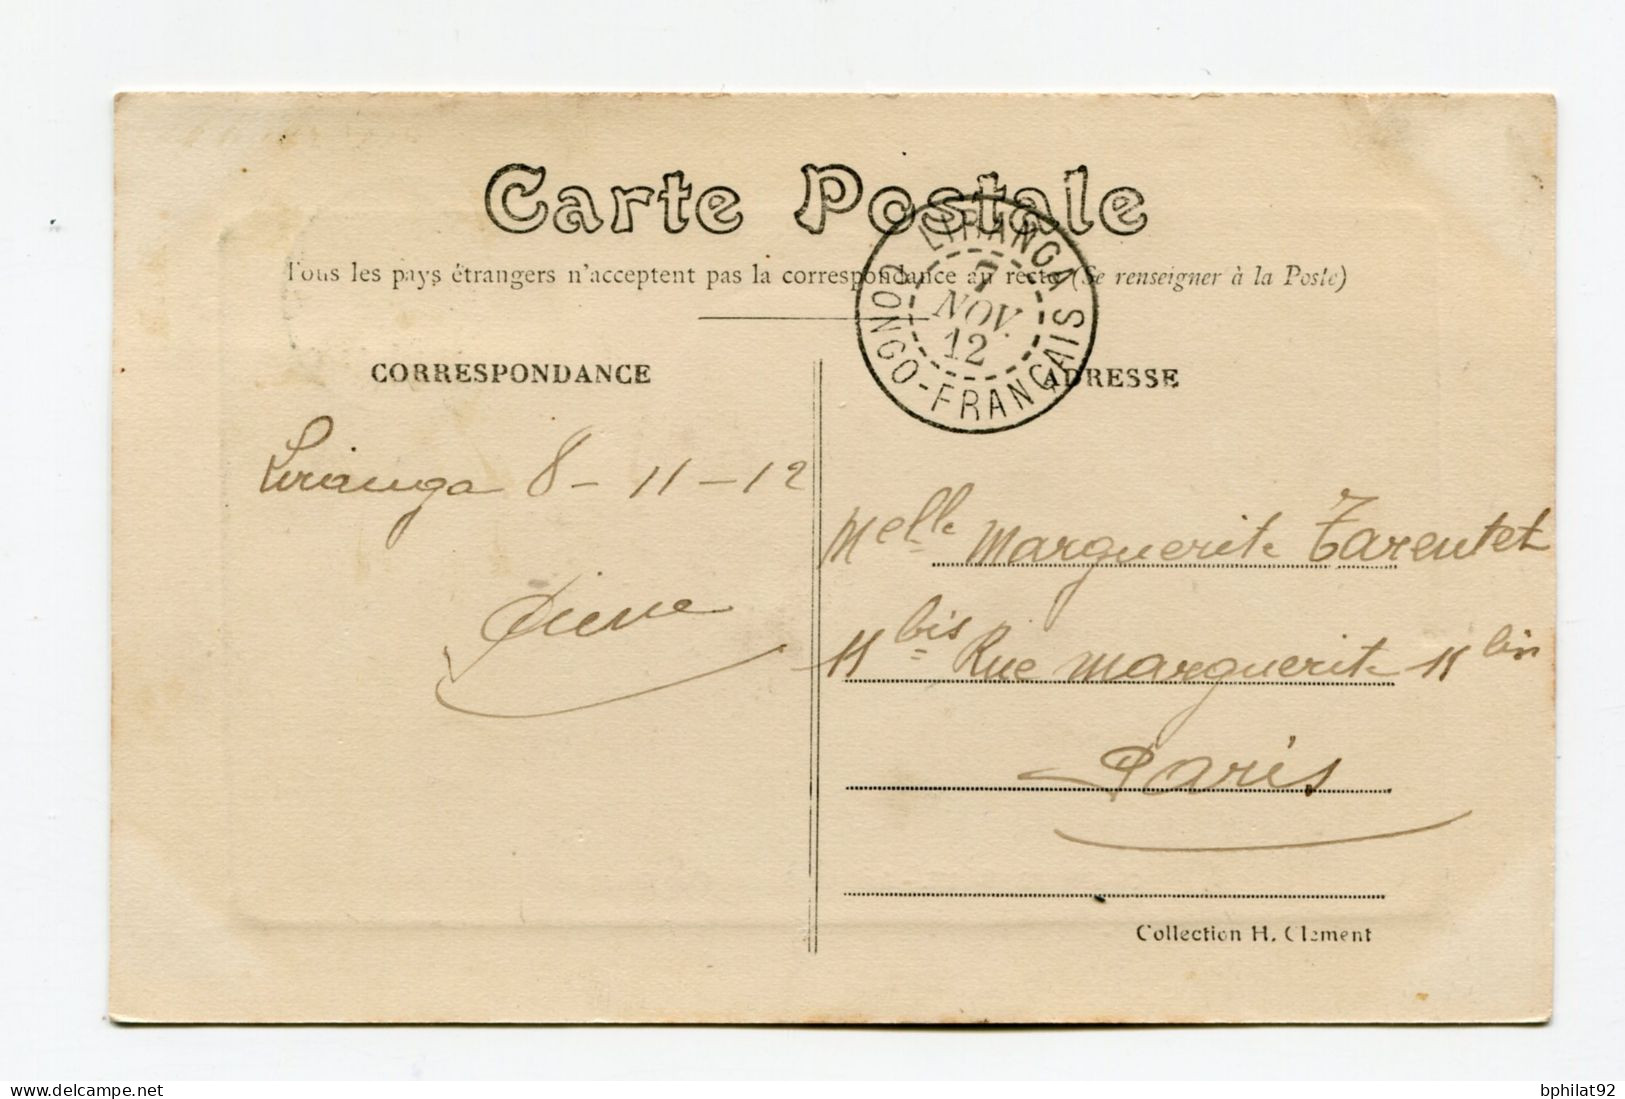 Carte Postale
Tous les pays étrangers n'acceptent pas la correspondance au recto (Se renseigner à la Poste)
LIRANGA
7
NOV.
12
CONGO-FRANÇAIS
CORRESPONDANCE
Liranga 8-11-12
Pierre
ADRESSE
Melle Marguerite Tarentet
11 bis Rue Marguerite 11 bis
Paris
Collection H. Clement
bphilat92